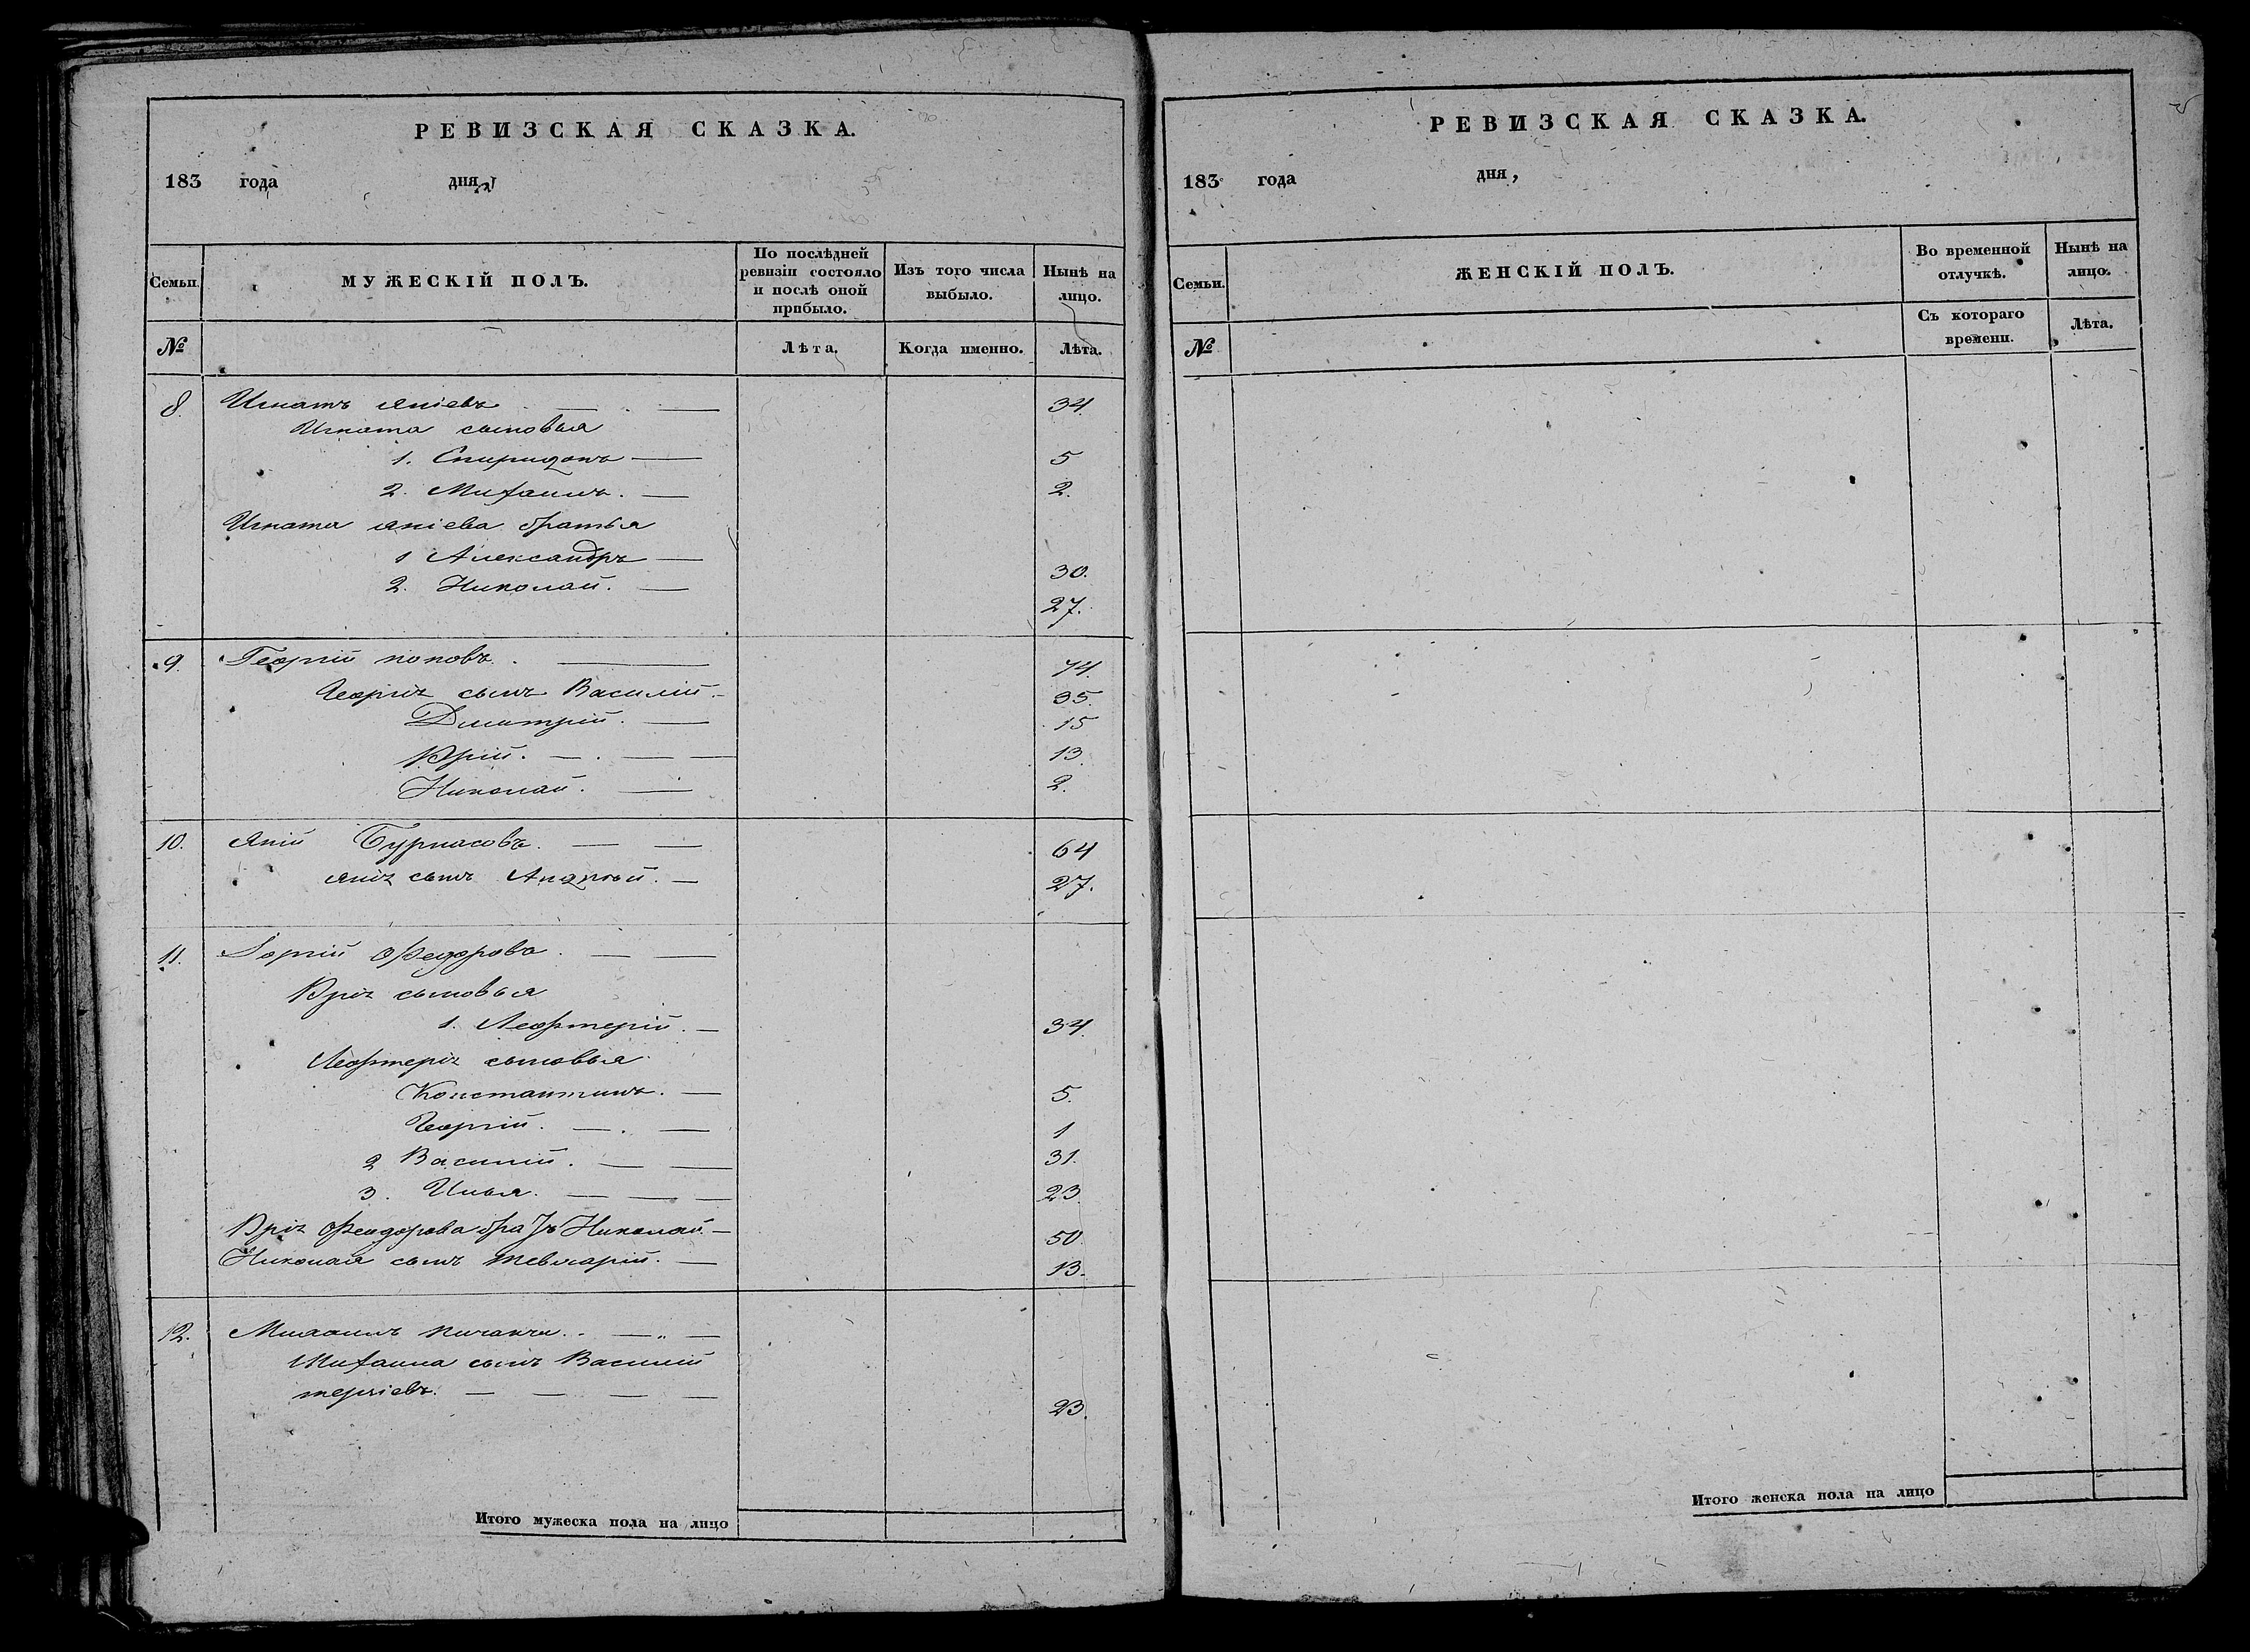 РЕВИЗСКАЯ СКАЗКА.
183 года дня,
Семьи.
МУЖЕСКІЙ ПОЛЪ.
По послѣдней ревизіи состояло и послѣ оной прибыло.
Изъ того числа выбыло.
Нынѣ на лицо.
№
Лѣта.
Когда именно.
Лѣта.
8. Игнатъ Яніевъ 34.
Игната сыновья
1. Спиридонъ 5
2. Михаилъ. 2.
Игната Яніева братья
1 Александръ 30.
2. Николай. 27.
9. Георгій Поповъ. 74.
Георгія сынъ Василій. 35.
Дмитрій. 15
Юрій. 13.
Николай. 2.
10. Яній Бурнасовъ. 64
Янія сынъ Андрѣй. 27.
11. Федоровъ.
Юрія сыновья
1. Леофтерій. 34.
Леофтерія сыновья
Константинъ. 5.
Георгій. 1
2 Василій. 31.
3. Илья. 23.
Юрія Феодорова братъ Николай. 50.
Николая сынъ 13.
12. Михаилъ
Михаила сынъ Василій
23.
Итого мужеска пола на лицо
РЕВИЗСКАЯ СКАЗКА.
183 года дня,
Семьи.
ЖЕНСКІЙ ПОЛЪ.
Во временной отлучкѣ.
Нынѣ на лицо.
№
Съ котораго времени.
Лѣта.
Итого женска пола на лицо